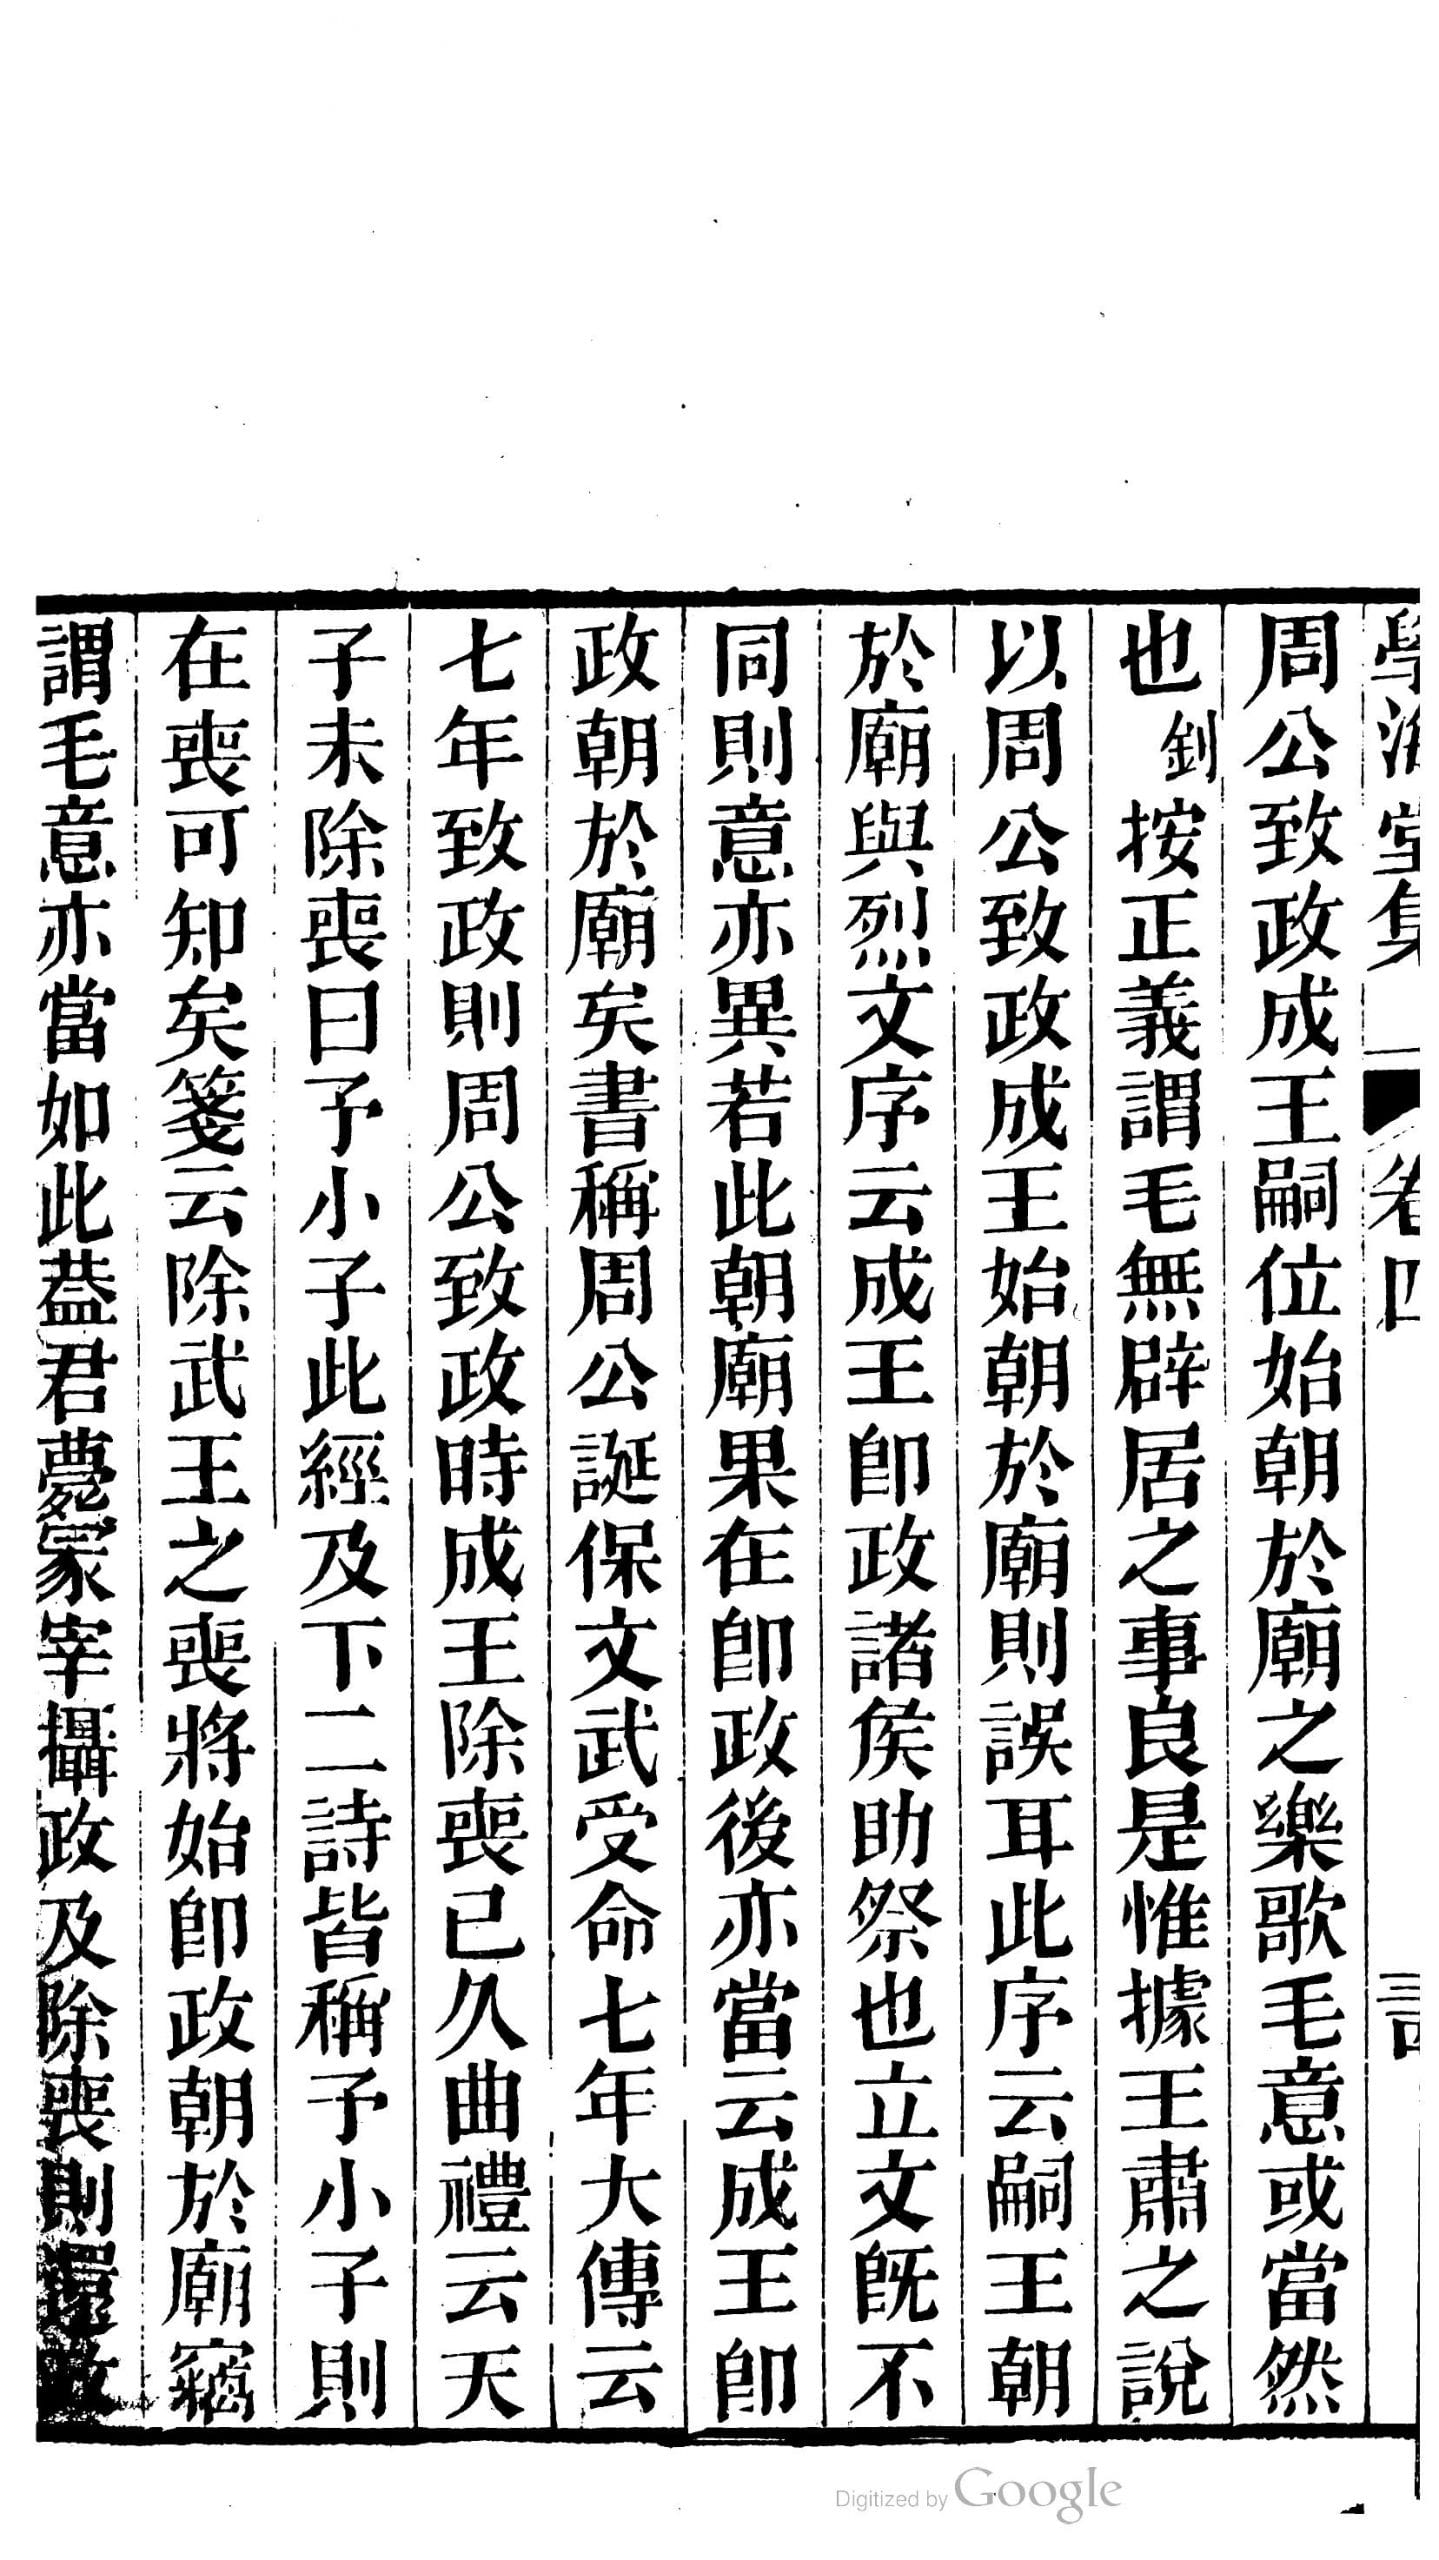 學海堂集 卷四
周公致政成王嗣位始朝於廟之樂歌毛意或當然
也釗按正義謂毛無辟居之事良是惟據王肅之說
以周公致政成王始朝於廟則誤耳此序云嗣王朝
於廟與烈文序云成王卽政諸侯助祭也立文旣不
同則意亦異若此朝廟果在卽政後亦當云成王卽
政朝於廟矣書稱周公誕保文武受命七年大傳云
七年致政則周公致政時成王除喪已久曲禮云天
子未除喪曰予小子此經及下二詩皆稱予小子則
在喪可知矣箋云除武王之喪將始卽政朝於廟竊
謂毛意亦當如此葢君薨冢宰攝政及除喪則還政
Digitized by Google